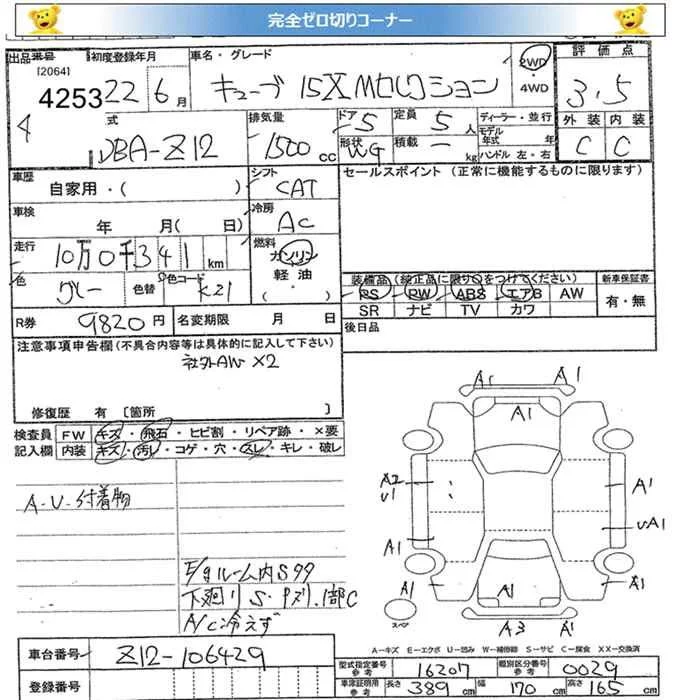 完全ゼロ切りコーナー
出品番号 初度登録年月 車名・グレード 評価点
[2064] 4253 22年6月 キューブ 15X Mセレクション 2WD・4WD 3.5
4
型式 排気量 ドア 5 定員 5人 ディーラー・並行 外装 内装
DBA-Z12 1500cc 形状 WG 積載 ー kg モデル年式 年式 ハンドル 左・右 C C
車歴 自家用・( ) シフト CAT セールスポイント (正常に機能するものに限ります)
車検 年 月( 日) 冷房 AC
走行 10万0千341km 燃料 ガソリン
軽油
( ・ )
色 グレー 色替 色コード K21
装備品 (純正品に限り○をつけてください) 新車保証書
PS PW ABS エアB AW 有・無
SR ナビ TV カワ
R券 9820円 名変期限 月 日 後日品
注意事項申告欄(不具合内容等は具体的に記入して下さい)
社外AW X2
修復歴 有 [箇所 ]
検査員 FW キズ・飛石・ヒビ割・リペア跡・×要
記入欄 内装 キズ・汚レ・コゲ・穴・スレ・キレ・破レ
A1 A1
A1
A2 U1 A1
UA1
A1
A1 A1 A1
A3 A1
スペア
A-U-付着物
E/gルーム内Sササ
下廻りS・キズ・1部C
A/C冷えず
A-キズ E-エクボ U-凹み W-補修跡 S-サビ C-腐食 XX-交換済
車台番号 Z12-106429
登録番号
型式指定番号 参考 16207 類別区分番号 参考 0029
車検証明用 参考 長さ 389cm 幅 170cm 高さ 165cm